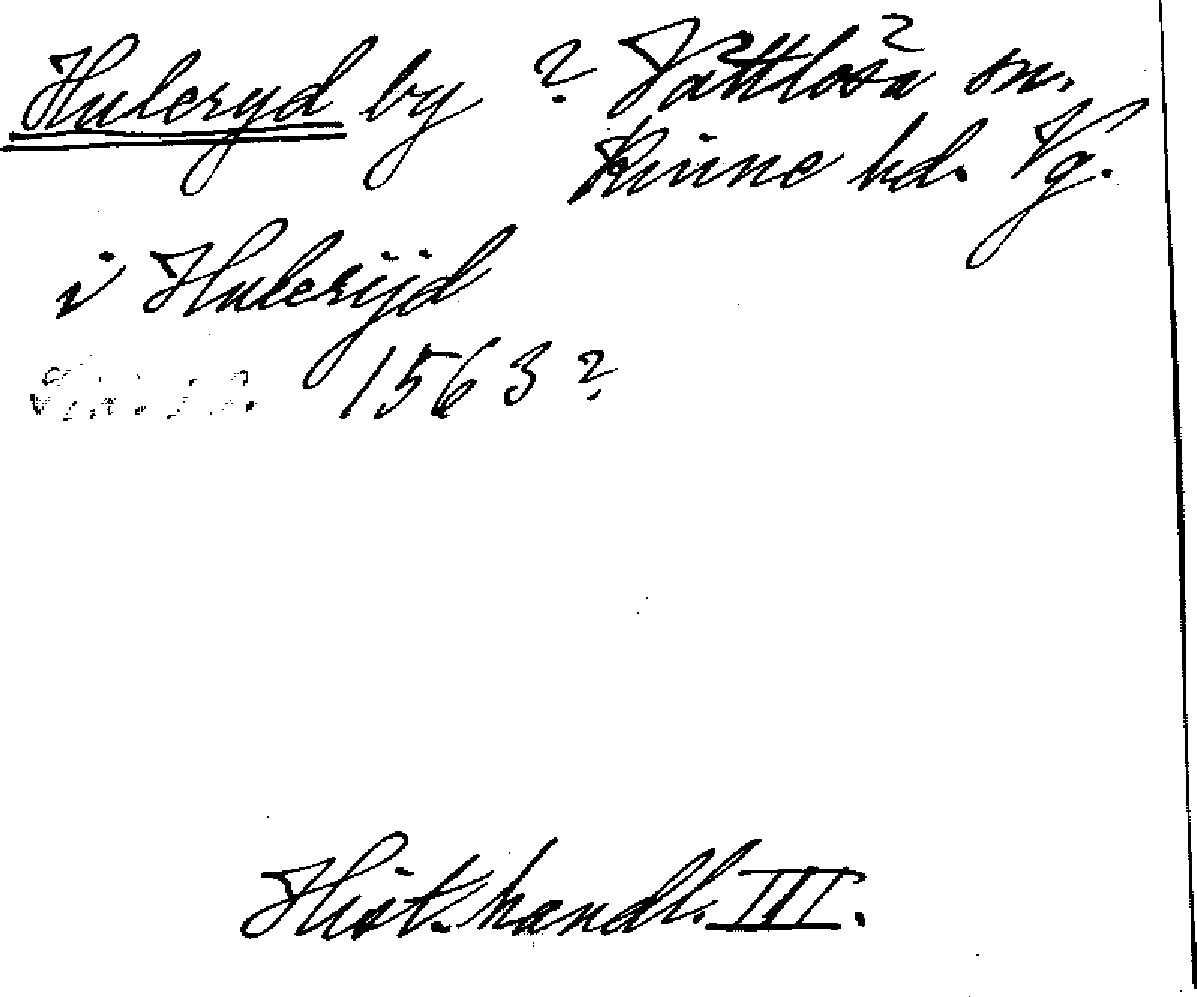 Huleryd by ? Vättlösa sn.
Kinne hd. Vg.
i Hulerÿd
1563?
Hist. handl. III.